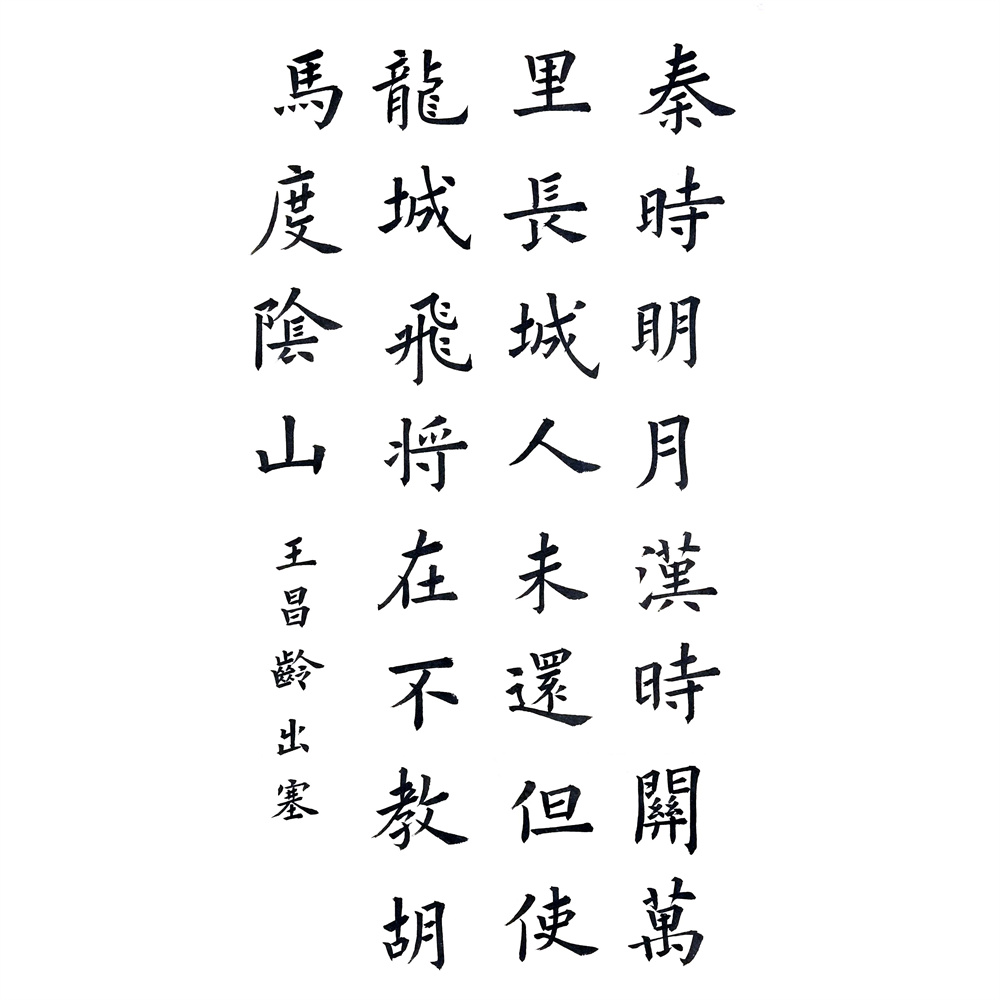 秦時明月漢時關萬
里長城人未還但使
龍城飛将在不教胡
馬度陰山
王昌齡出塞